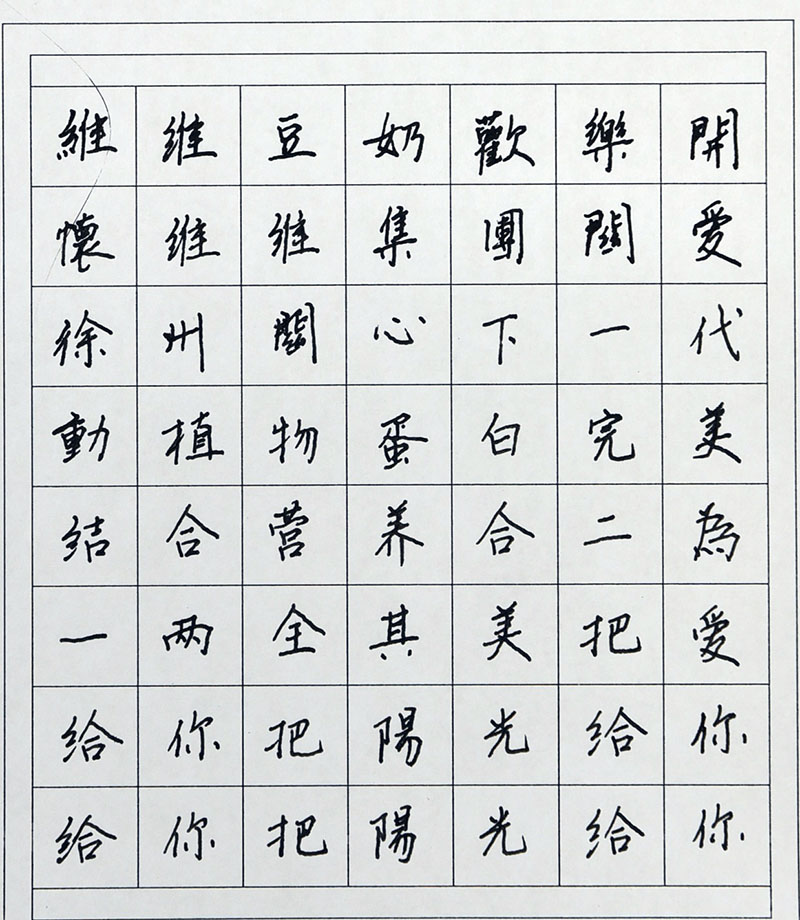 維维豆奶歡樂開
懷维维集團關愛
徐州關心下一代
動植物蛋白完美
结合营养合二為
一两全其美把愛
给你把陽光给你
给你把陽光给你